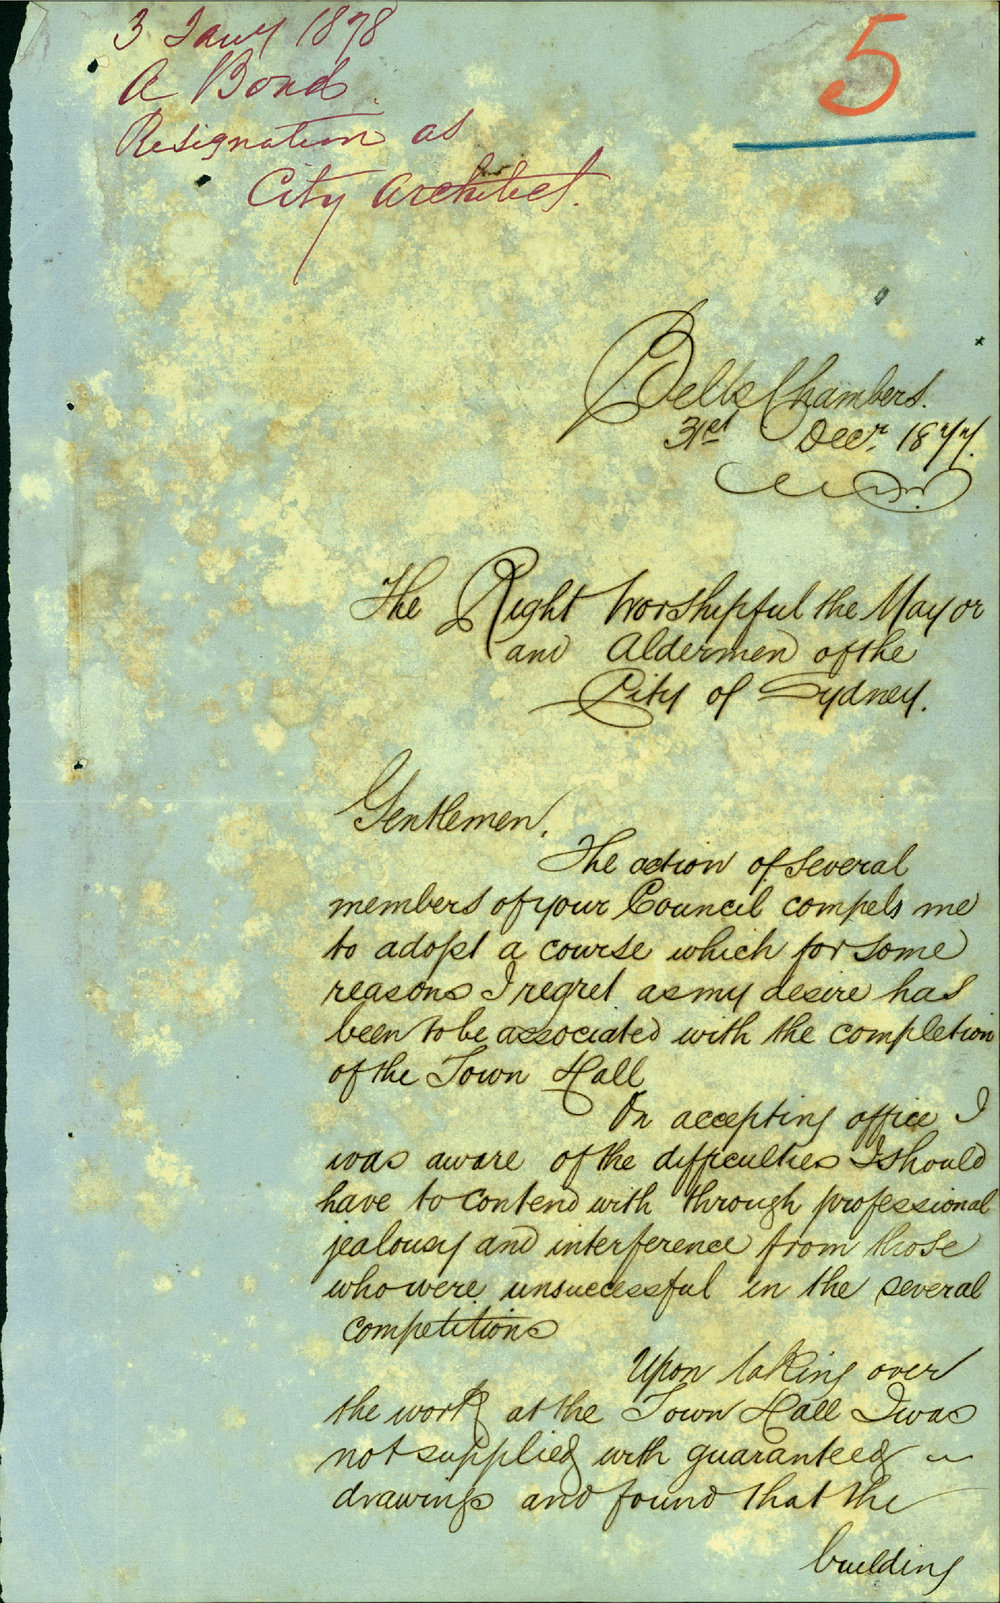 3 Jany 1878
A Bond
Resignation as
City Architect.
5
Bells Chambers.
31st Decr. 1877.
The Right Worshipful the Mayor
and Aldermen of the
City of Sydney.
Gentlemen,
The action of several
members of your Council compels me
to adopt a course which for some
reasons I regret as my desire has
been to be associated with the completion
of the Town Hall
On accepting office I
was aware of the difficulties I should
have to contend with through professional
jealousy and interference from those
who were unsuccessful in the several
competitions
Upon taking over
the work at the Town Hall I was
not supplied with guaranteed
drawings and found that the
building